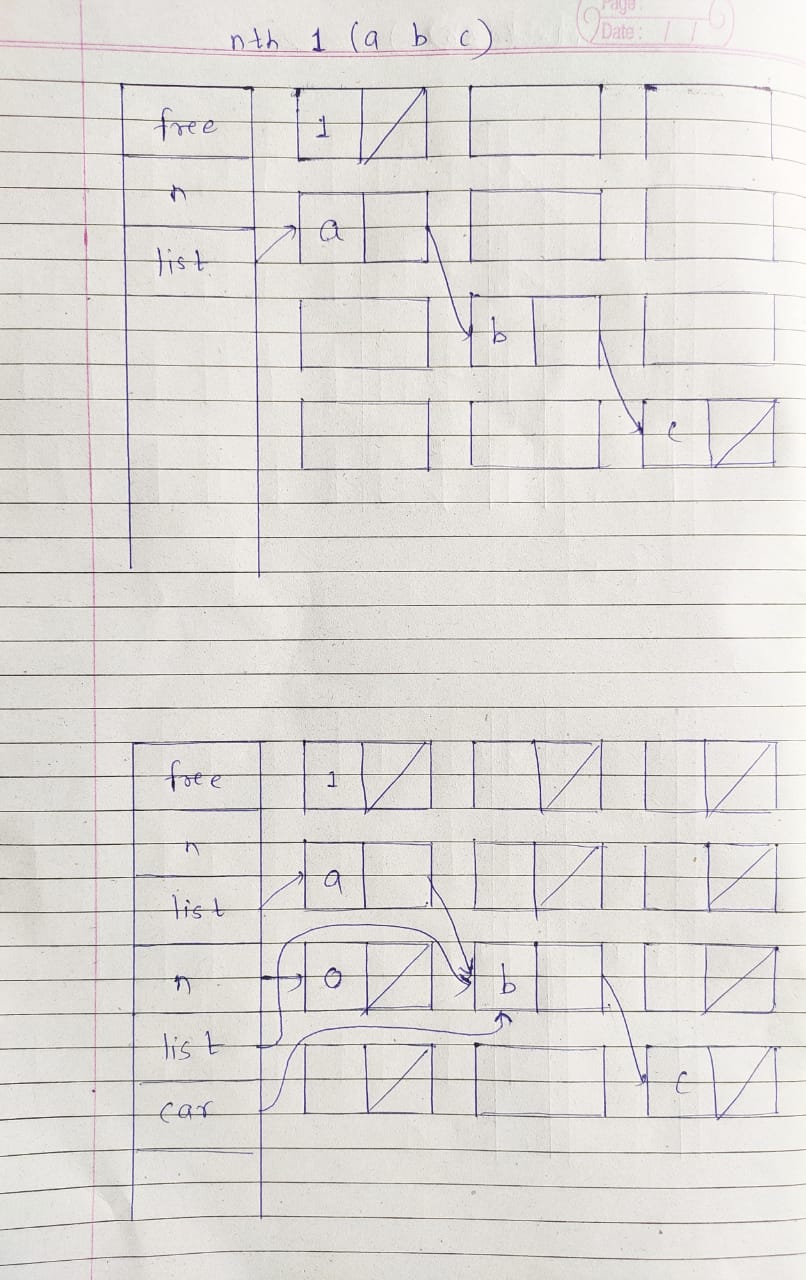 Page:
Date: / /
nth 1 (a b c)
free 1
n
list a
b
c
free 1
n
list a
n 0 b
list
car c